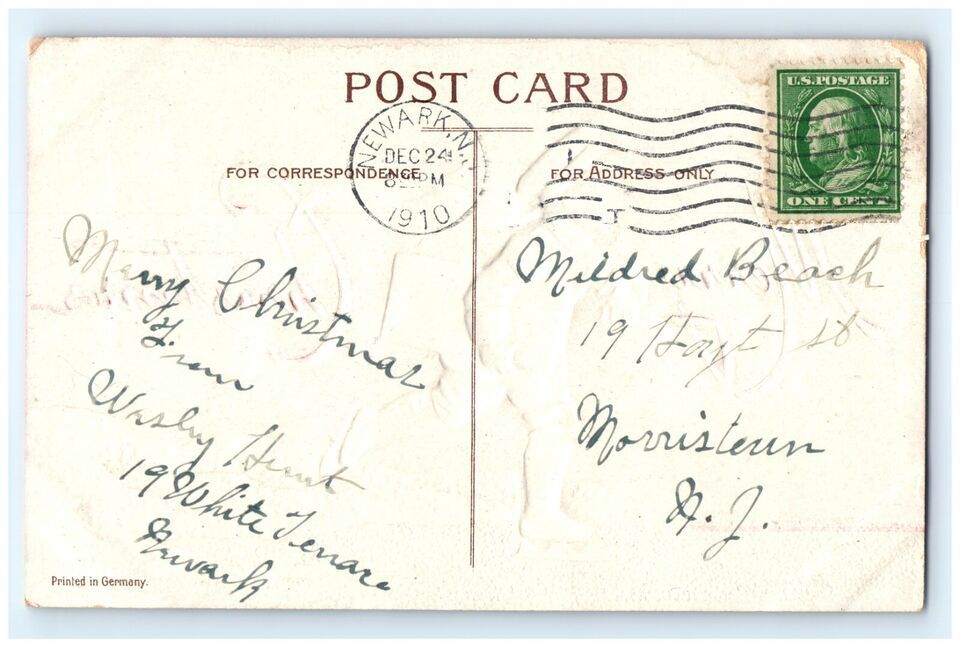 POST CARD
NEWARK, N.J.
DEC 24
8 PM
1910
U.S. POSTAGE
ONE CENT
FOR CORRESPONDENCE
FOR ADDRESS ONLY
Merry Christmas
From
Wesley Hunt
19 White Terrace
Newark
Mildred Beach
19 Hoyt St
Morristown
N. J.
Printed in Germany.